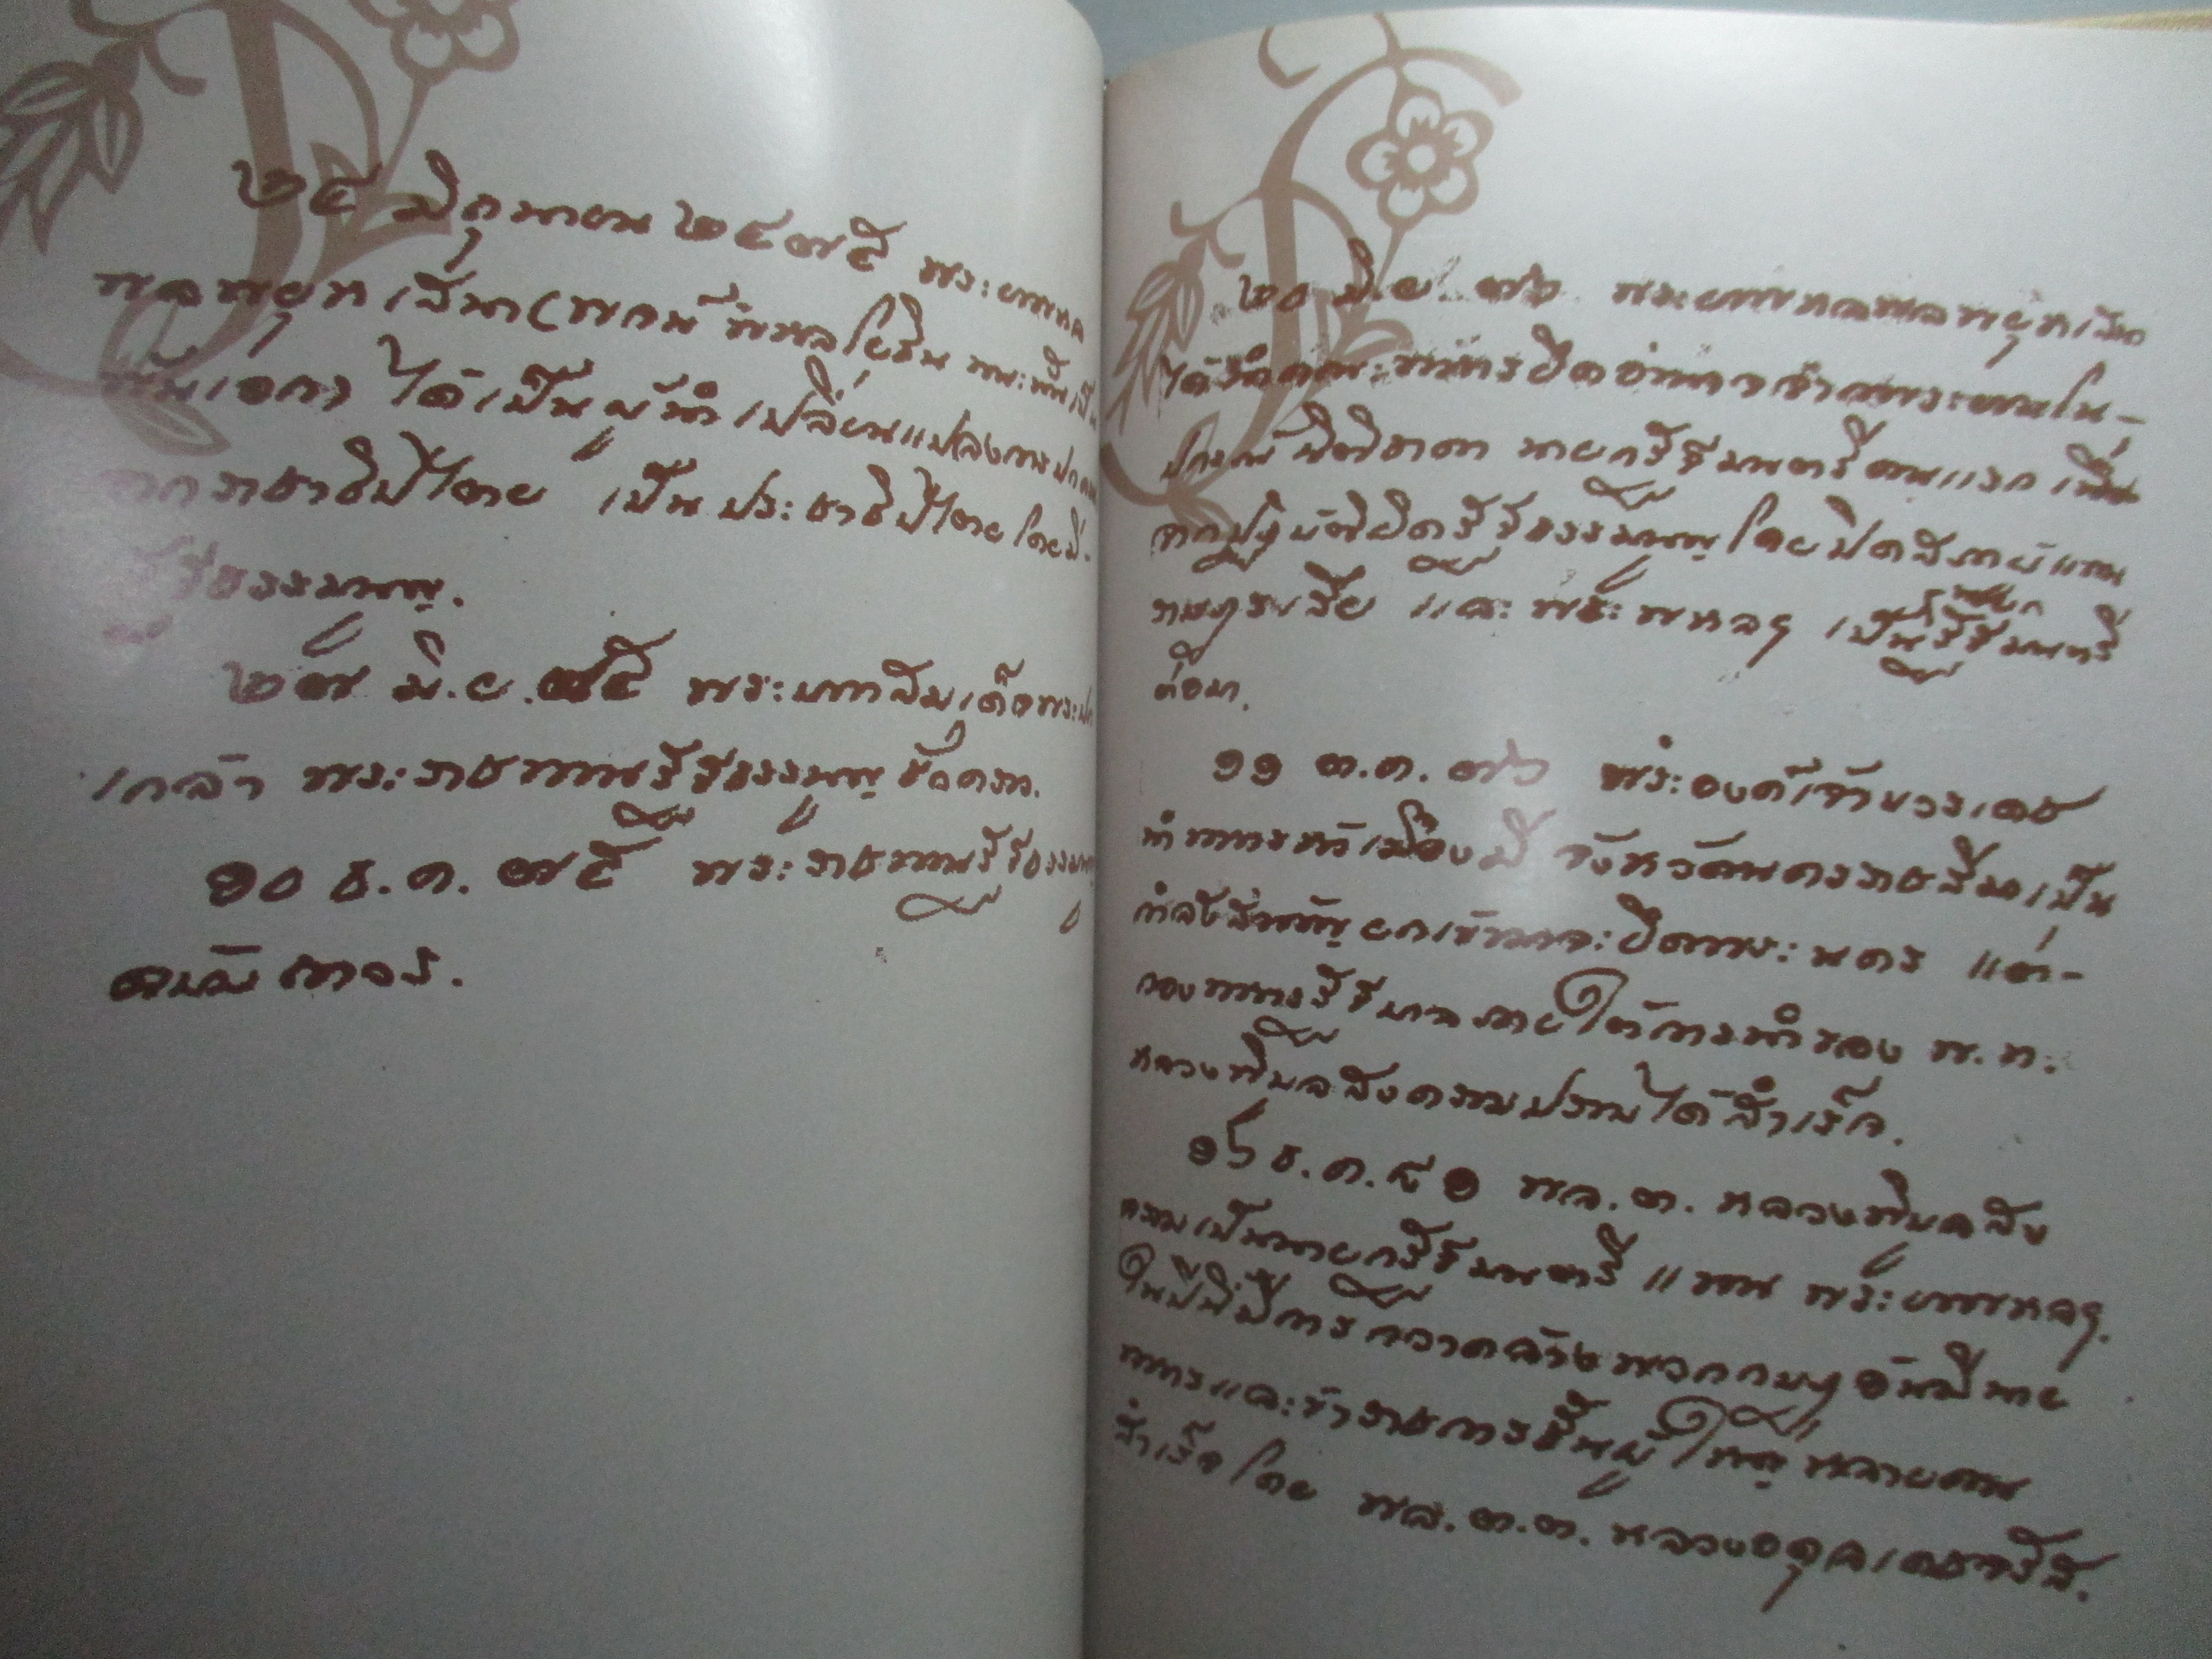 ๒๔ มิถุนายน ๒๔๗๕ พระยาพหล
พลพยุหเสนา (พจน์ พหลโยธิน ขณะนั้นเป็น
พันเอก) ได้เป็นผู้นำเปลี่ยนแปลงการปกครอง
จากราชาธิปไตย เป็นประชาธิปไตยโดยมี-
รัฐธรรมนูญ.
๒๗ มิ.ย.๗๕ พระบาทสมเด็จพระปก
เกล้าฯ พระราชทานรัฐธรรมนูญชั่วคราว.
๑๐ ธ.ค. ๗๕ พระราชทานรัฐธรรมนูญ
ฉบับถาวร.
๒๐ มิ.ย. ๗๖ พระยาพหลพลพยุหเสนา
ได้นำคณะทหารยึดอำนาจจากพระยามโน-
ปกรณ์นิติธาดา นายกรัฐมนตรีคนแรก
รัฐธรรมนูญ โดยปิดสภาผู้แทน
ราษฎรเสีย และพระพหลฯ เป็นนายกรัฐมนตรี
ต่อมา.
๑๑ ต.ค. ๗๖ พระองค์เจ้าบวรเดช
นำทหารหัวเมืองมี จังหวัดนครราชสีมาเป็น
กำลังสำคัญ ยกเข้ามาจะยึดพระนคร แต่-
กองทหารรัฐบาลภายใต้การนำของ พ.ท.
หลวงพิบูลสงครามปราบได้สำเร็จ.
๑๖ ธ.ค.๘๑ พล.ต. หลวงพิบูลสง
ครามเป็นนายกรัฐมนตรี แทน พระยาพหลฯ.
ในปีนี้มีการกวาดล้างพวกกบฏอันมีนาย
ทหารและข้าราชการชั้นผู้ใหญ่หลายคน
สำเร็จโดย พล.ต.ต. หลวงอดุลเดชจรัส.